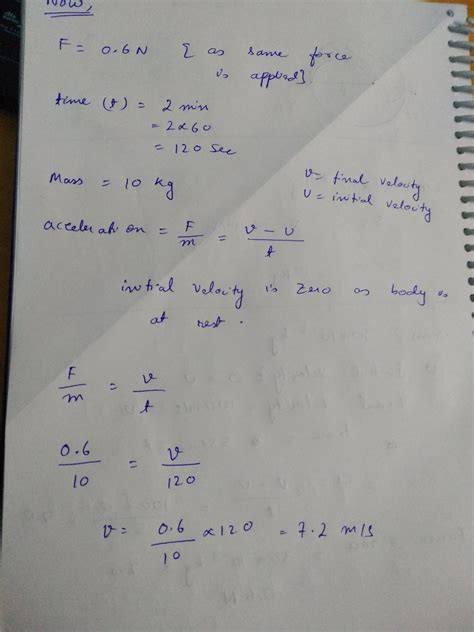 Now,
F = 0.6N [ as same force
is applied]
time (t) = 2 min
= 2x60
= 120 Sec
Mass = 10 kg
v = final velocity
U = initial velocity
acceleration = F/m = v - u/t
initial velocity is zero as body is
at rest.
F/m = v/t
0.6/10 = v/120
v = 0.6/10 x 120 = 7.2 m/s